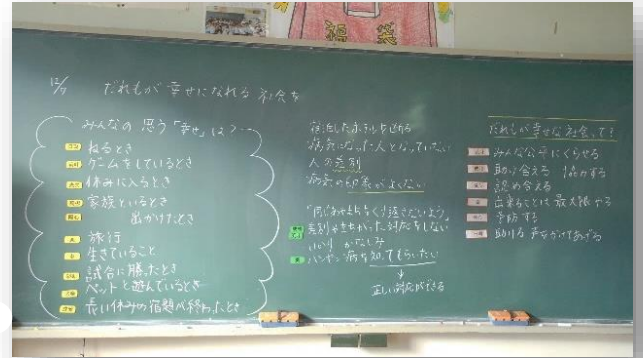 福袋
12/7 だれもが幸せになれる社会を
みんなの思う「幸せ」は?…
ねるとき
ゲームをしているとき
休みに入るとき
家族といるとき
出かけたとき
旅行
生きていること
試合に勝ったとき
ペットと遊んでいるとき
長い休みの宿題が終わったとき
病気になった人となっていない
人の差別
病気の印象がよくない
同じあやまちをくり返さないよう。
差別やまちがった対応をしない
いかり かなしみ
ハンセン病を知ってもらいたい
↓
正しい対応ができる
だれもが幸せな社会って?
みんな公平にくらせる
助け合える 協力する
認め合える
出来ることは最大限やる
予防する
助ける 声をかけてあげる